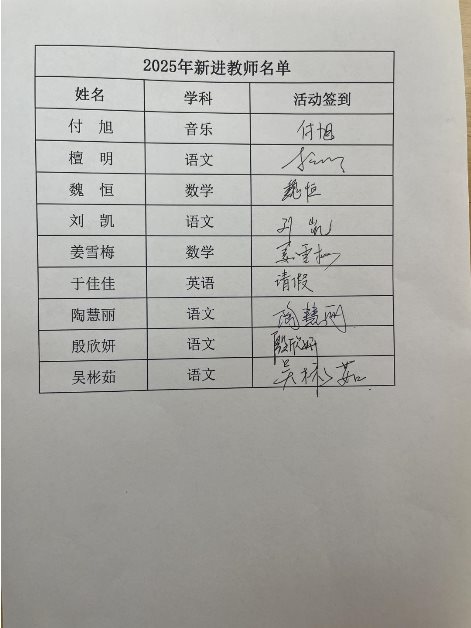 2025年新进教师名单
姓名 学科 活动签到
付 旭 音乐 付旭
檀 明 语文
魏 恒 数学 魏恒
刘 凯 语文 刘凯
姜雪梅 数学 姜雪梅
于佳佳 英语 请假
陶慧丽 语文 陶慧丽
殷欣妍 语文 殷欣妍
吴彬茹 语文 吴彬茹